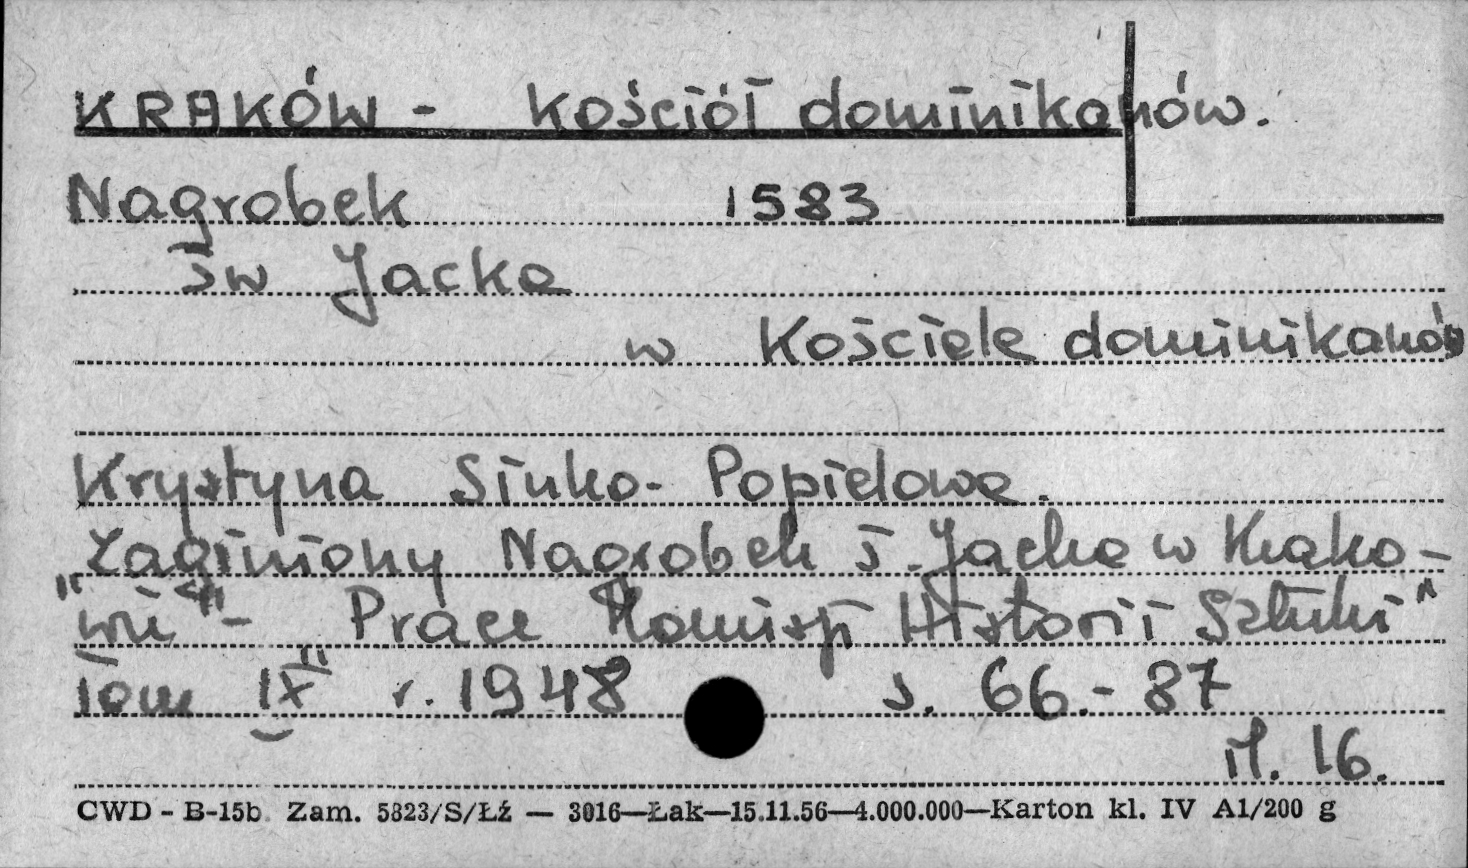 KRAKÓW - Kościół dominikanów.
Nagrobek 1583
św Jacka
w Kościele dominikanów
Krystyna Sinko-Popielowa.
Zaginiony Nagrobek ś. Jacka w Krako-
"wie" - Prace Komisji Historii Sztuki"
Tom IX r. 1948 s. 66.-87
il. 16.
CWD - B-15b Zam. 5823/S/Łź — 3016—Łak—15.11.56—4.000.000—Karton kl. IV A1/200 g